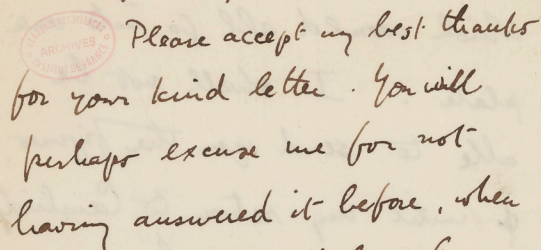 ARCHIVES
Please accept my best thanks
for your kind letter. You will
perhaps excuse me for not
having answered it before, when